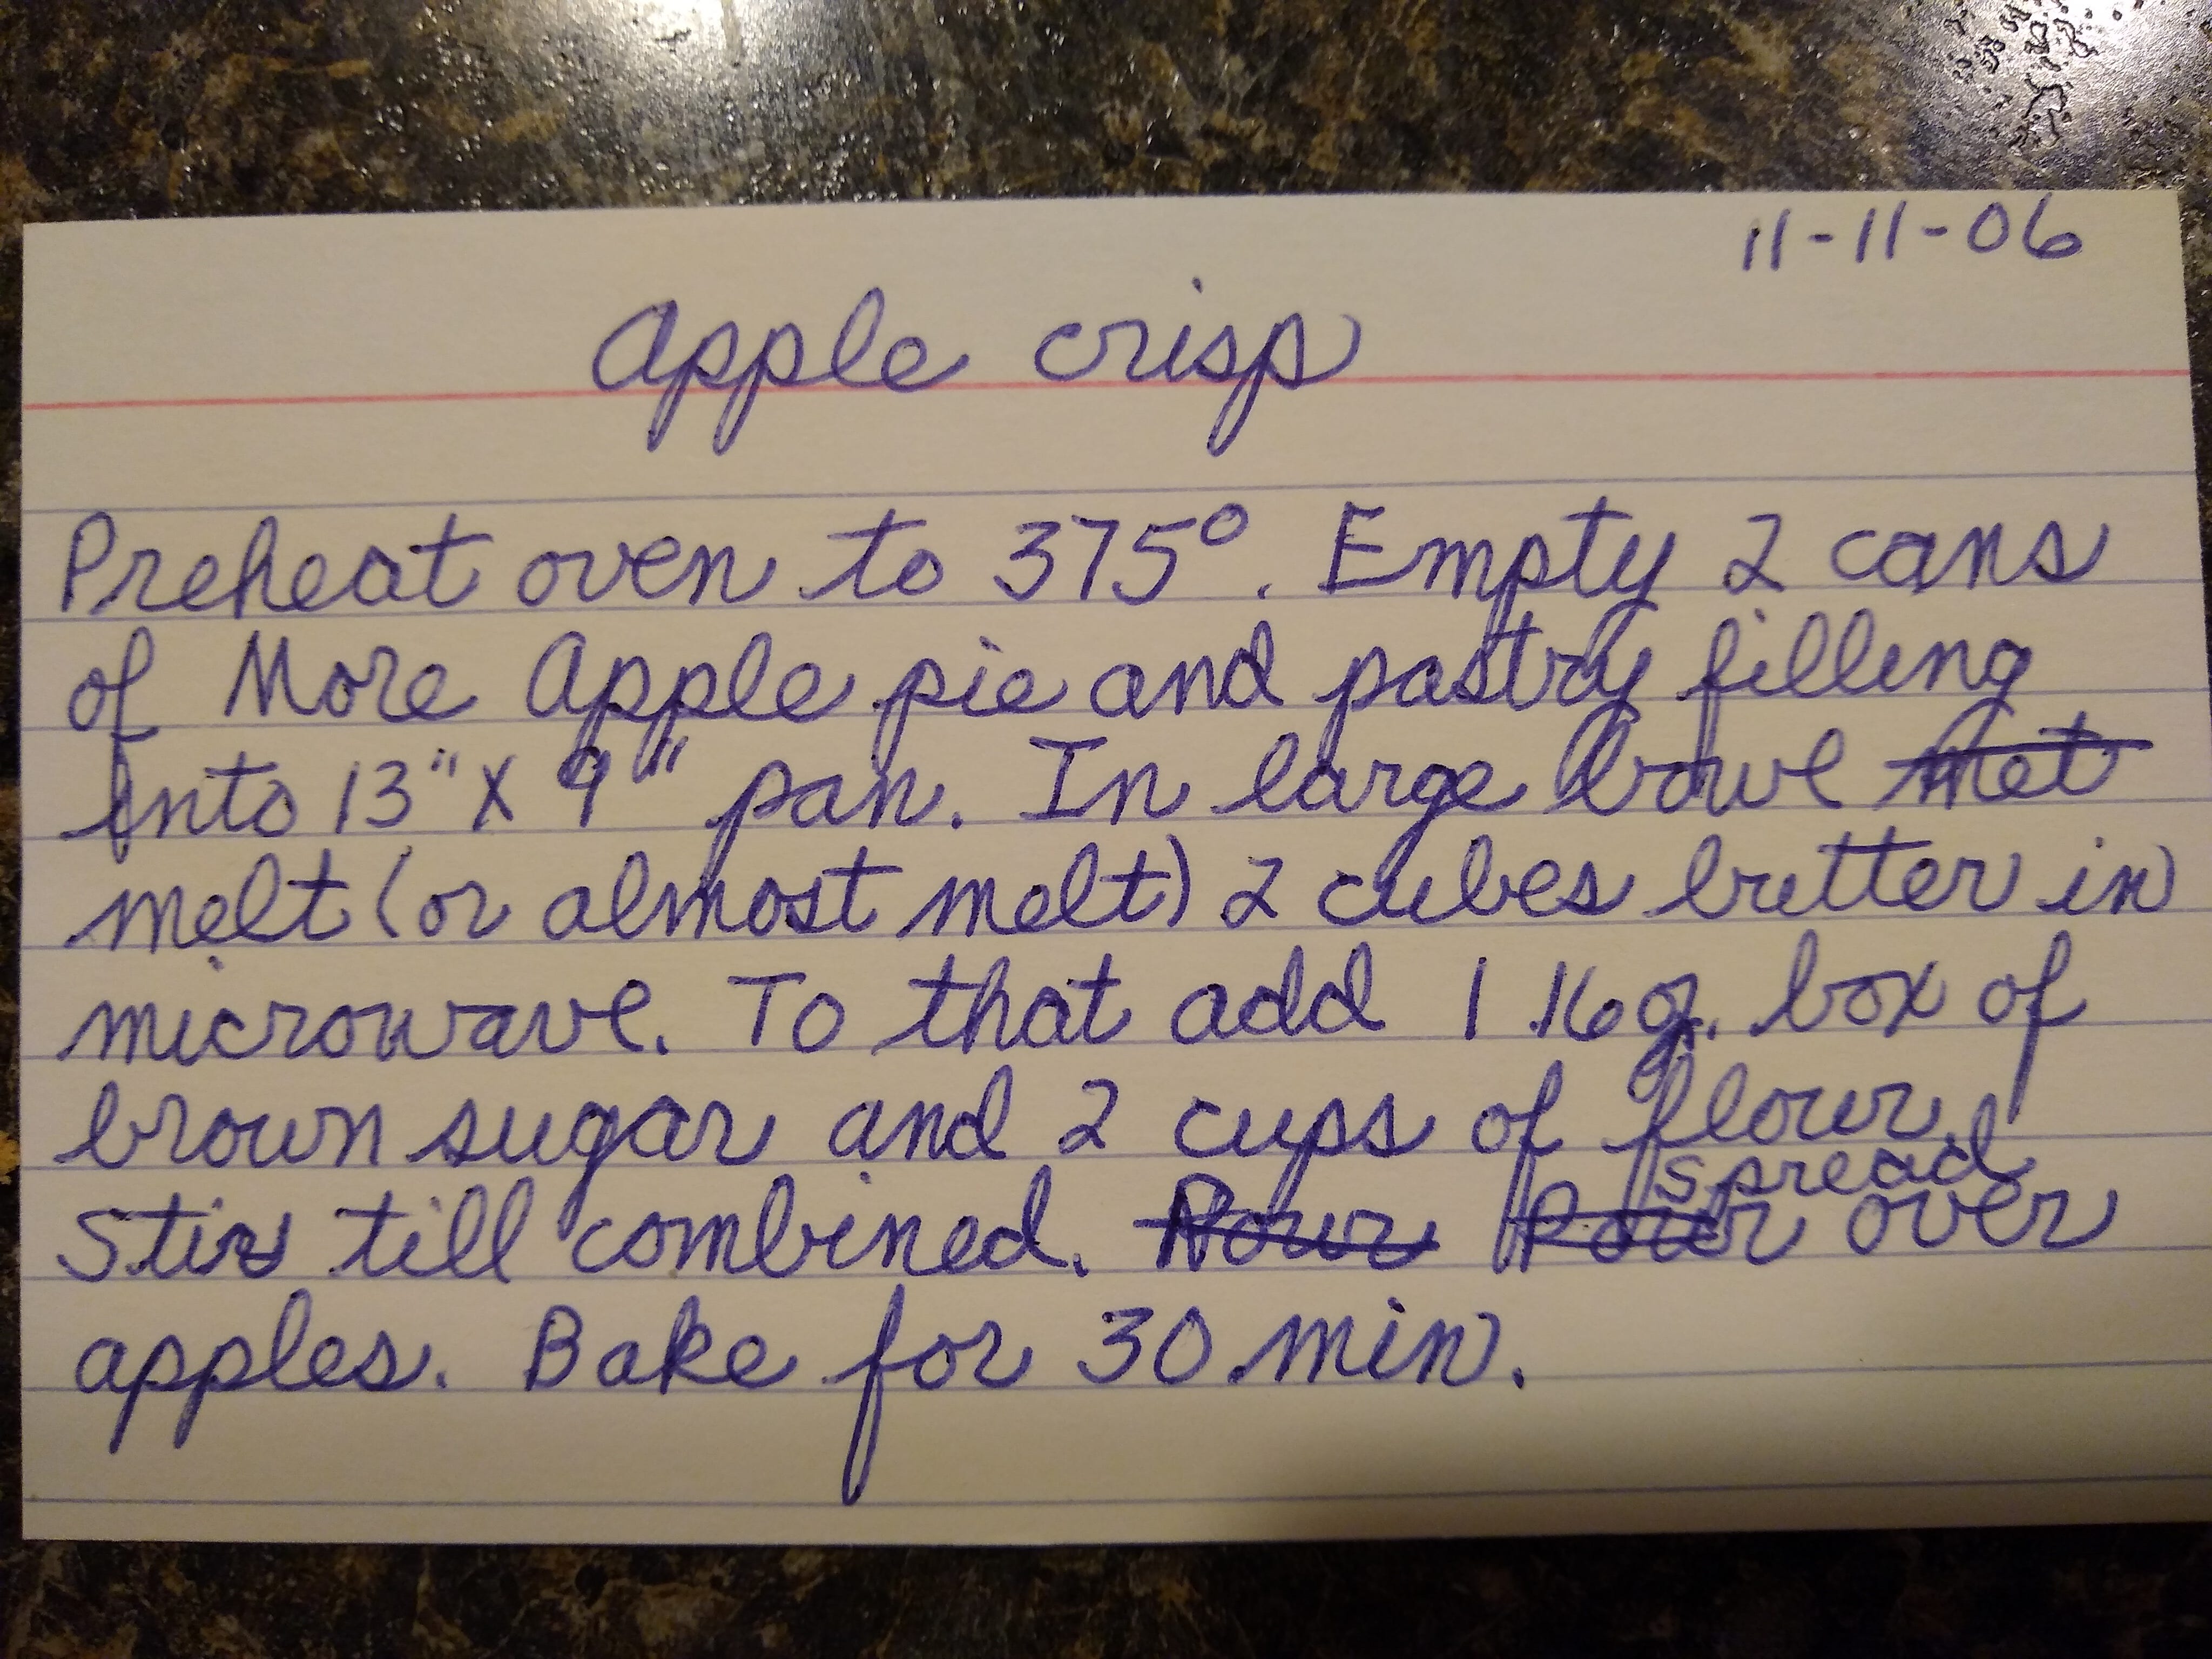 11-11-06
Apple crisp
Preheat oven to 375°. Empty 2 cans
of More Apple pie and pastry filling
into 13" X 9" pan. In large bowl met
melt (or almost melt) 2 cubes butter in
microwave. To that add 1 16 oz. box of
brown sugar and 2 cups of flour.
spread
Stir till combined. Pour Pour over
apples. Bake for 30 min.